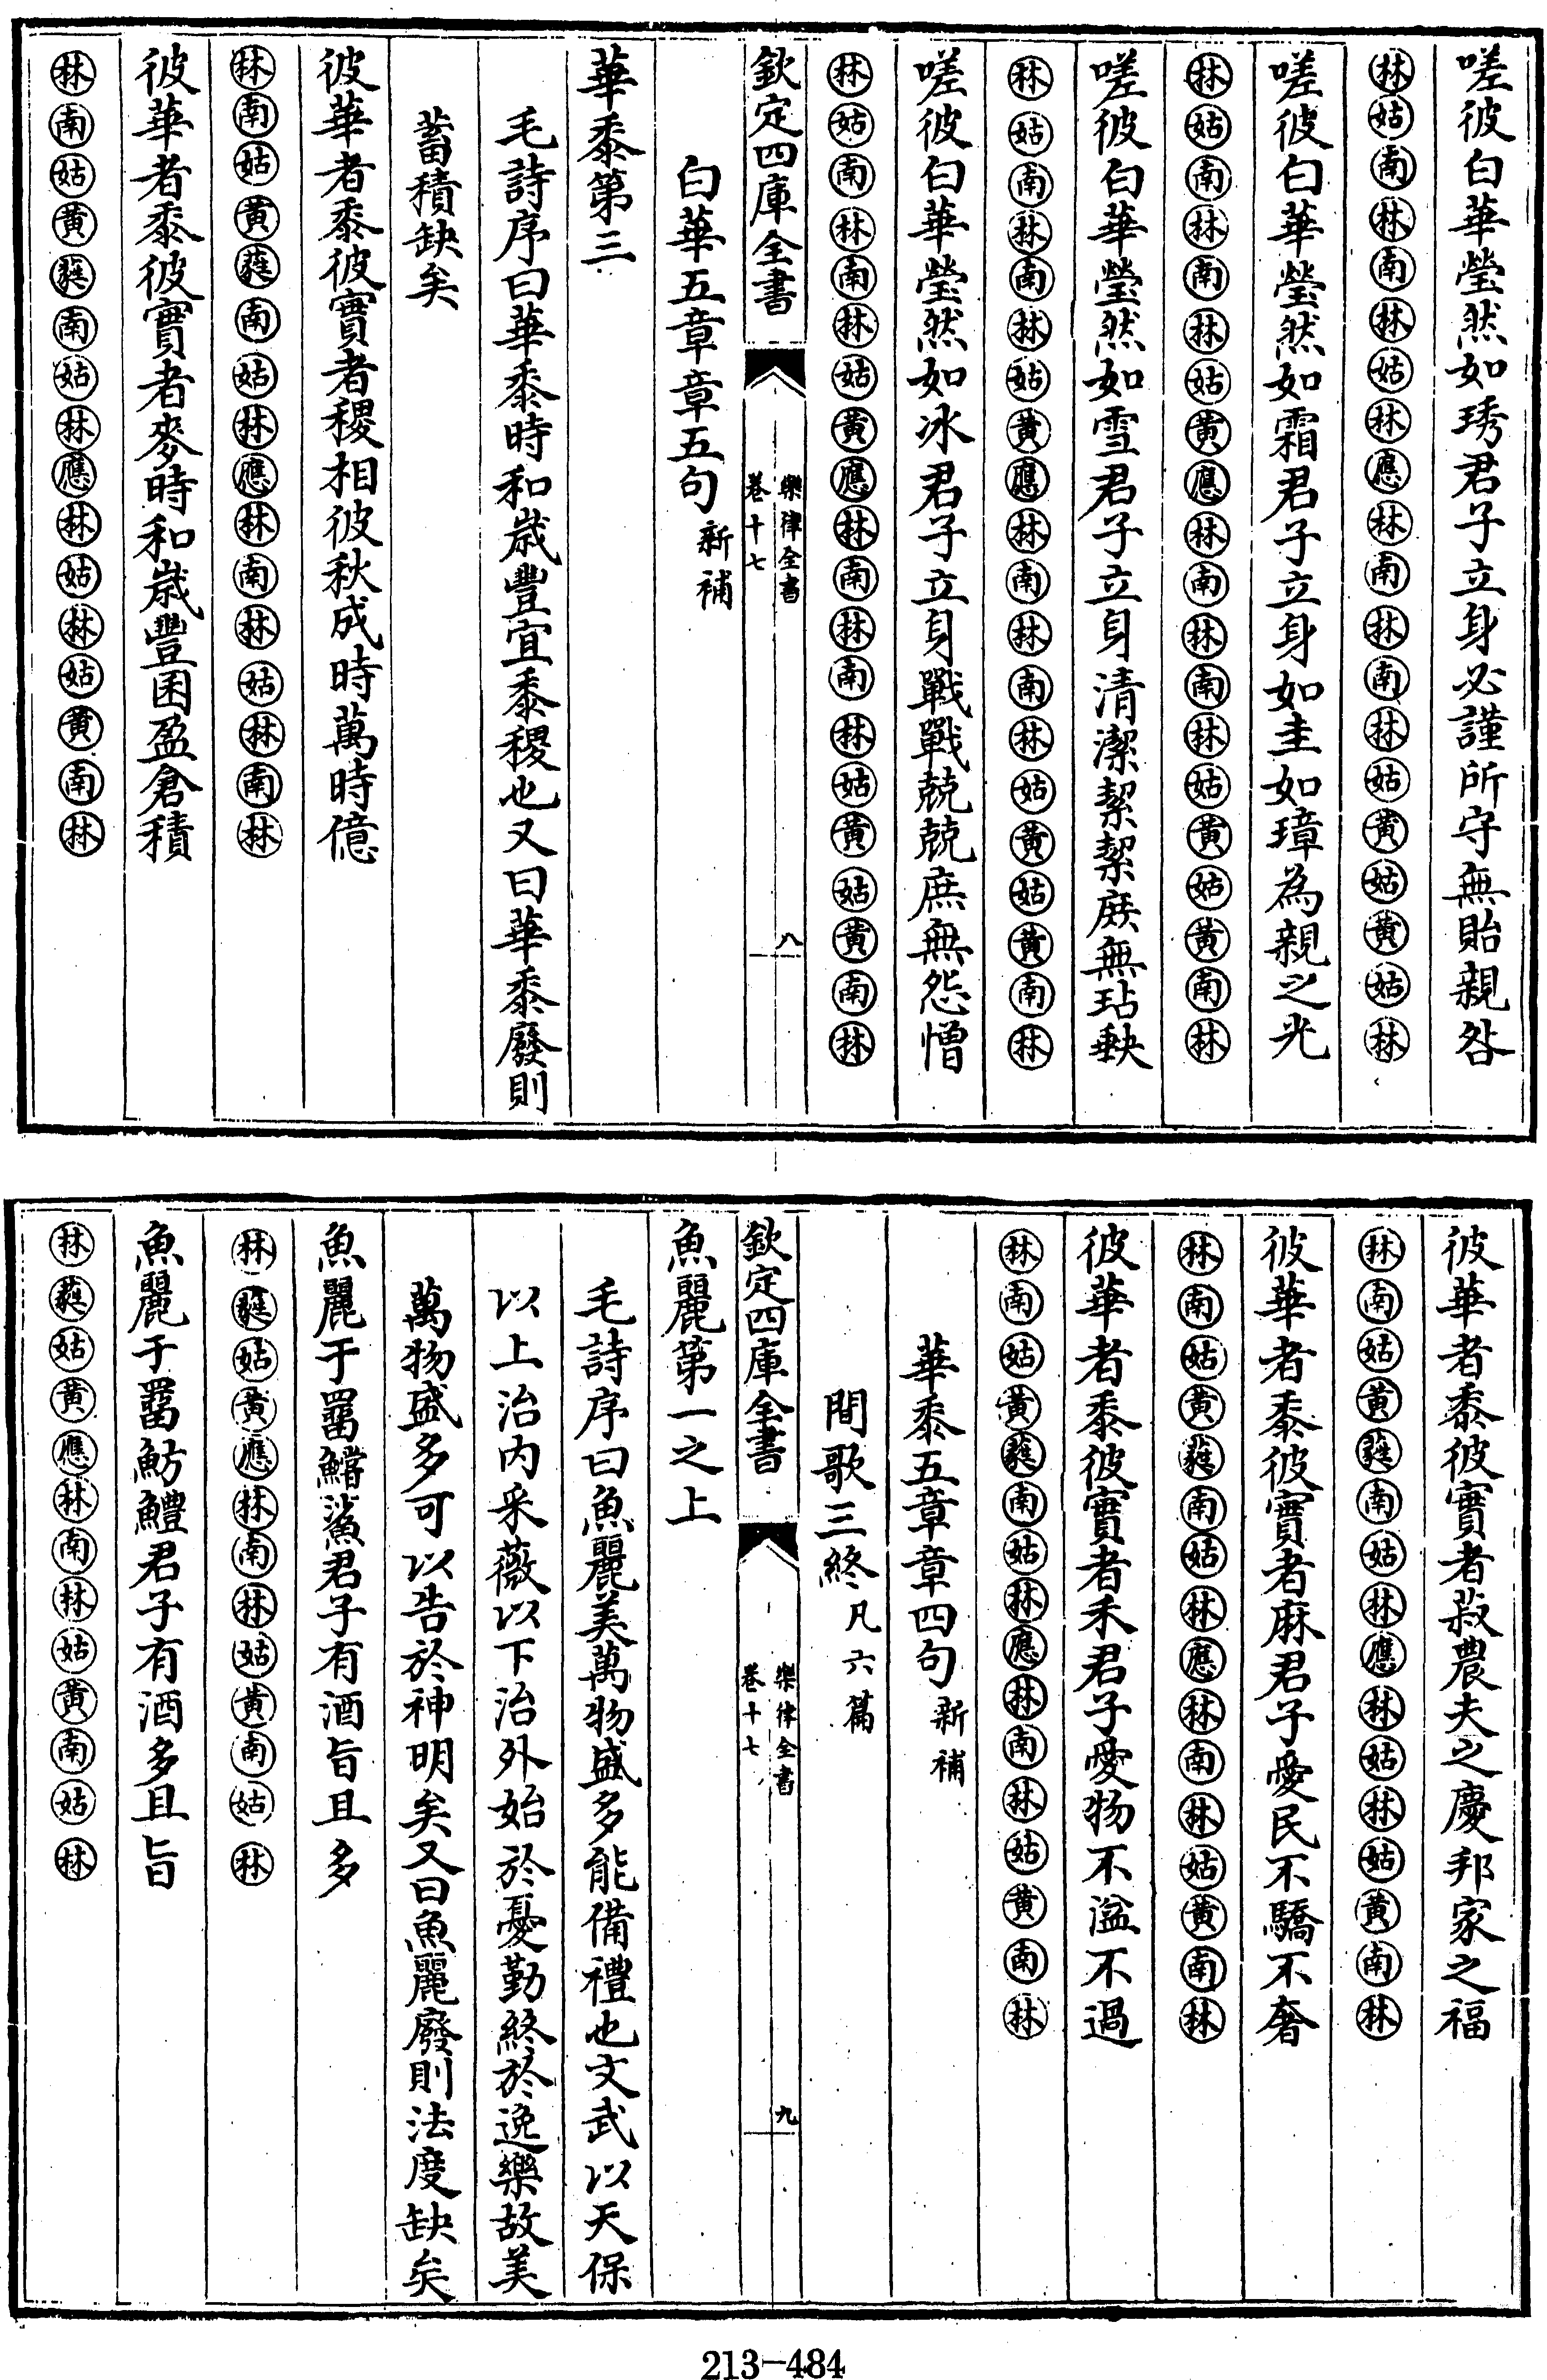 嗟彼白華瑩然如琇君子立身必謹所守無貽親咎
林姑南林南林姑林應林南林南林姑黄姑黄姑林
嗟彼白華瑩然如霜君子立身如圭如璋為親之光
林姑南林南林姑黄應林南南林姑黄姑黄南林
嗟彼白華瑩然如雪君子立身清潔絜絜庶無玷缺
林姑南林南林姑黄應林南林南林姑黄姑黄南林
嗟彼白華瑩然如冰君子立身戰戰兢兢庶無怨憎
林姑南林南林姑黄應林南林南林姑黄姑黄南林
欽定四庫全書
樂律全書
卷十七
八
白華五章章五句新補
華黍第三
毛詩序曰華黍時和歲豐宜黍稷也又曰華黍廢則
蓄積缺矣
彼華者黍彼實者稷相彼秋成時萬時億
林南姑黄蕤南姑林應林南林姑林南林
彼華者黍彼實者麥時和歲豐囷盈倉積
林南姑黄蕤南姑林應林姑林姑黄南林
彼華者黍彼實者菽農夫之慶邦家之福
林南姑黄蕤南姑林應林姑林姑黄南林
彼華者黍彼實者麻君子愛民不驕不奢
林南姑黄蕤南姑林應林南林姑黄南林
彼華者黍彼實者禾君子愛物不溢不過
林南姑黄蕤南姑林應林南林姑黄南林
華黍五章章四句新補
間歌三終凡六篇
欽定四庫全書
樂律全書
卷十七
九
魚麗第一之上
毛詩序曰魚麗美萬物盛多能備禮也文武以天保
以上治内采薇以下治外始於憂勤終於逸樂故美
萬物盛多可以告於神明矣又曰魚麗廢則法度缺矣
魚麗于罶鱨鯊君子有酒旨且多
林蕤姑黄應林南林姑黄南姑林
魚麗于罶魴鱧君子有酒多且旨
林蕤姑黄應林南林姑黄南姑林
213-484